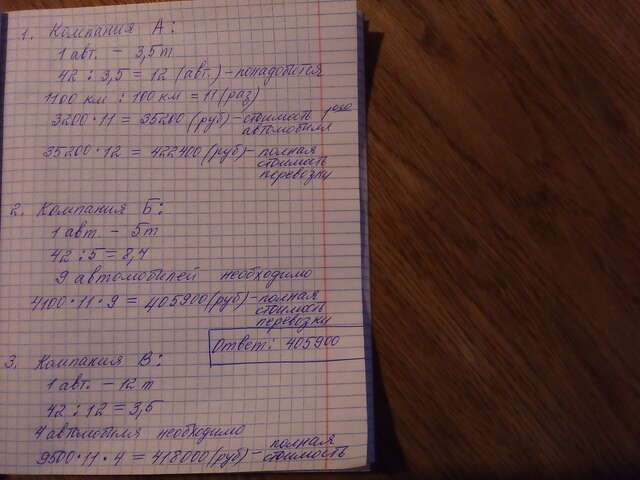 1. Компания А:
1 авт. - 3,5 т
42 : 3,5 = 12 (авт.) - понадобится
1100 км : 100 км = 11 (раз)
3200 · 11 = 35200 (руб) - стоимость 1ого
автомобиля
35200 · 12 = 422400 (руб) - полная
стоимость
перевозки
2. Компания Б:
1 авт - 5т
42 : 5 = 8,4
9 автомобилей необходимо
4100 · 11 · 9 = 405900 (руб) - полная
стоимость
перевозки
Ответ: 405900
3. Компания В:
1 авт. - 12 т
42 : 12 = 3,5
4 автомобиля необходимо
9500 · 11 · 4 = 418000 (руб) - полная
стоимость